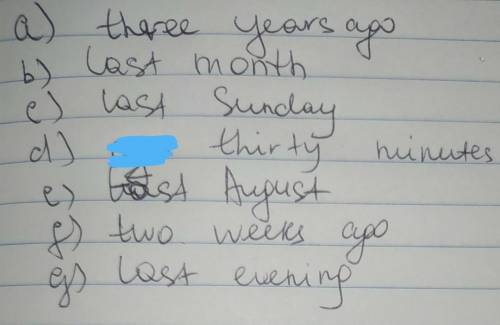 a) three years ago
b) last month
c) last Sunday
d) thirty minutes
e) last August
f) two weeks ago
g) last evening